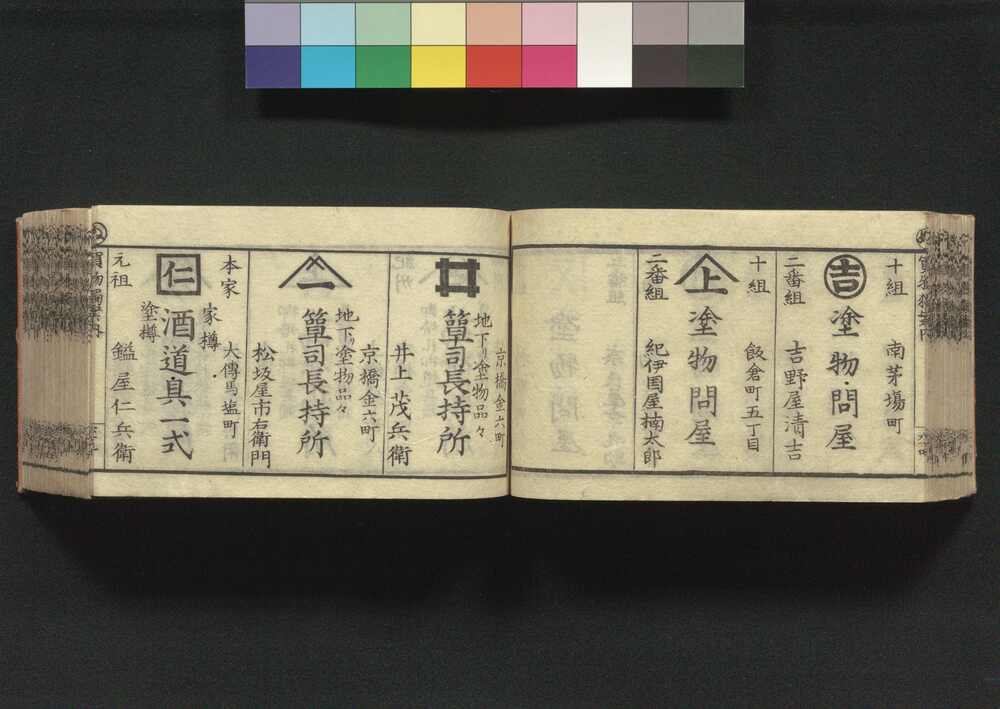 十組
南茅場町
吉
塗物問屋
二番組
吉野屋清吉
十組
飯倉町五丁目
上
塗物問屋
二番組
紀伊国屋楠太郎
京橋金六町
地下り塗物品々
井
簞司長持所
井上茂兵衛
京橋金六町
地下り塗物品々
一
簞司長持所
松坂屋市右衛門
本家
大傳馬塩町
家樽
仁
酒道具一式
塗樽
元祖
鎰屋仁兵衛